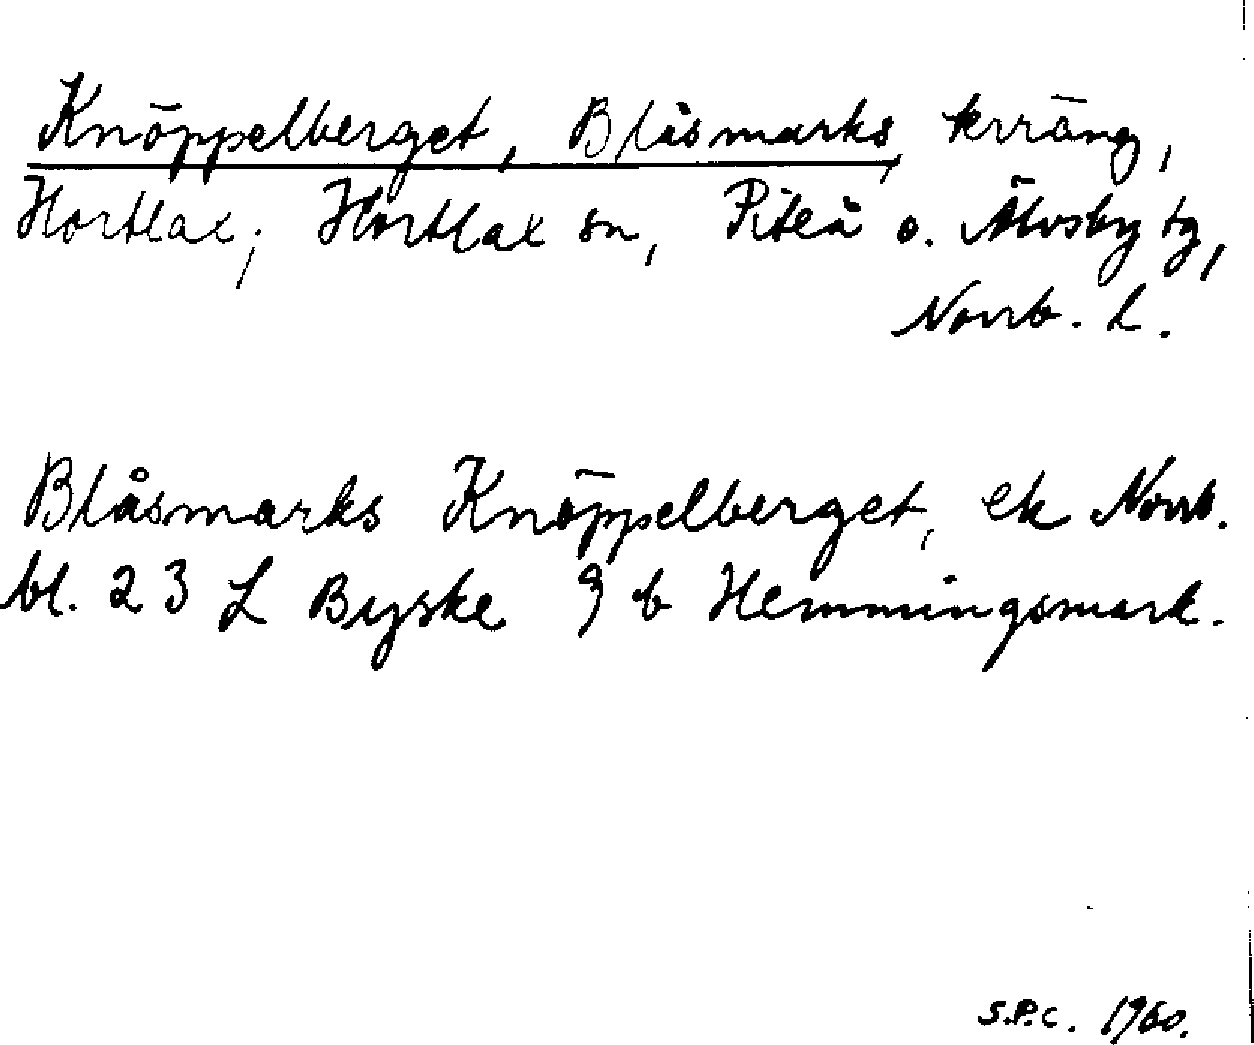 Knöppelberget, Blåsmarks, terräng,
Hortlax; Hortlax sn, Piteå o. Älvsby tg,
Norrb. l.
Blåsmarks Knöppelberget, ek Norrb.
bl. 23 L Byske 9 b Hemmingsmark.
S.P.C. 1960.